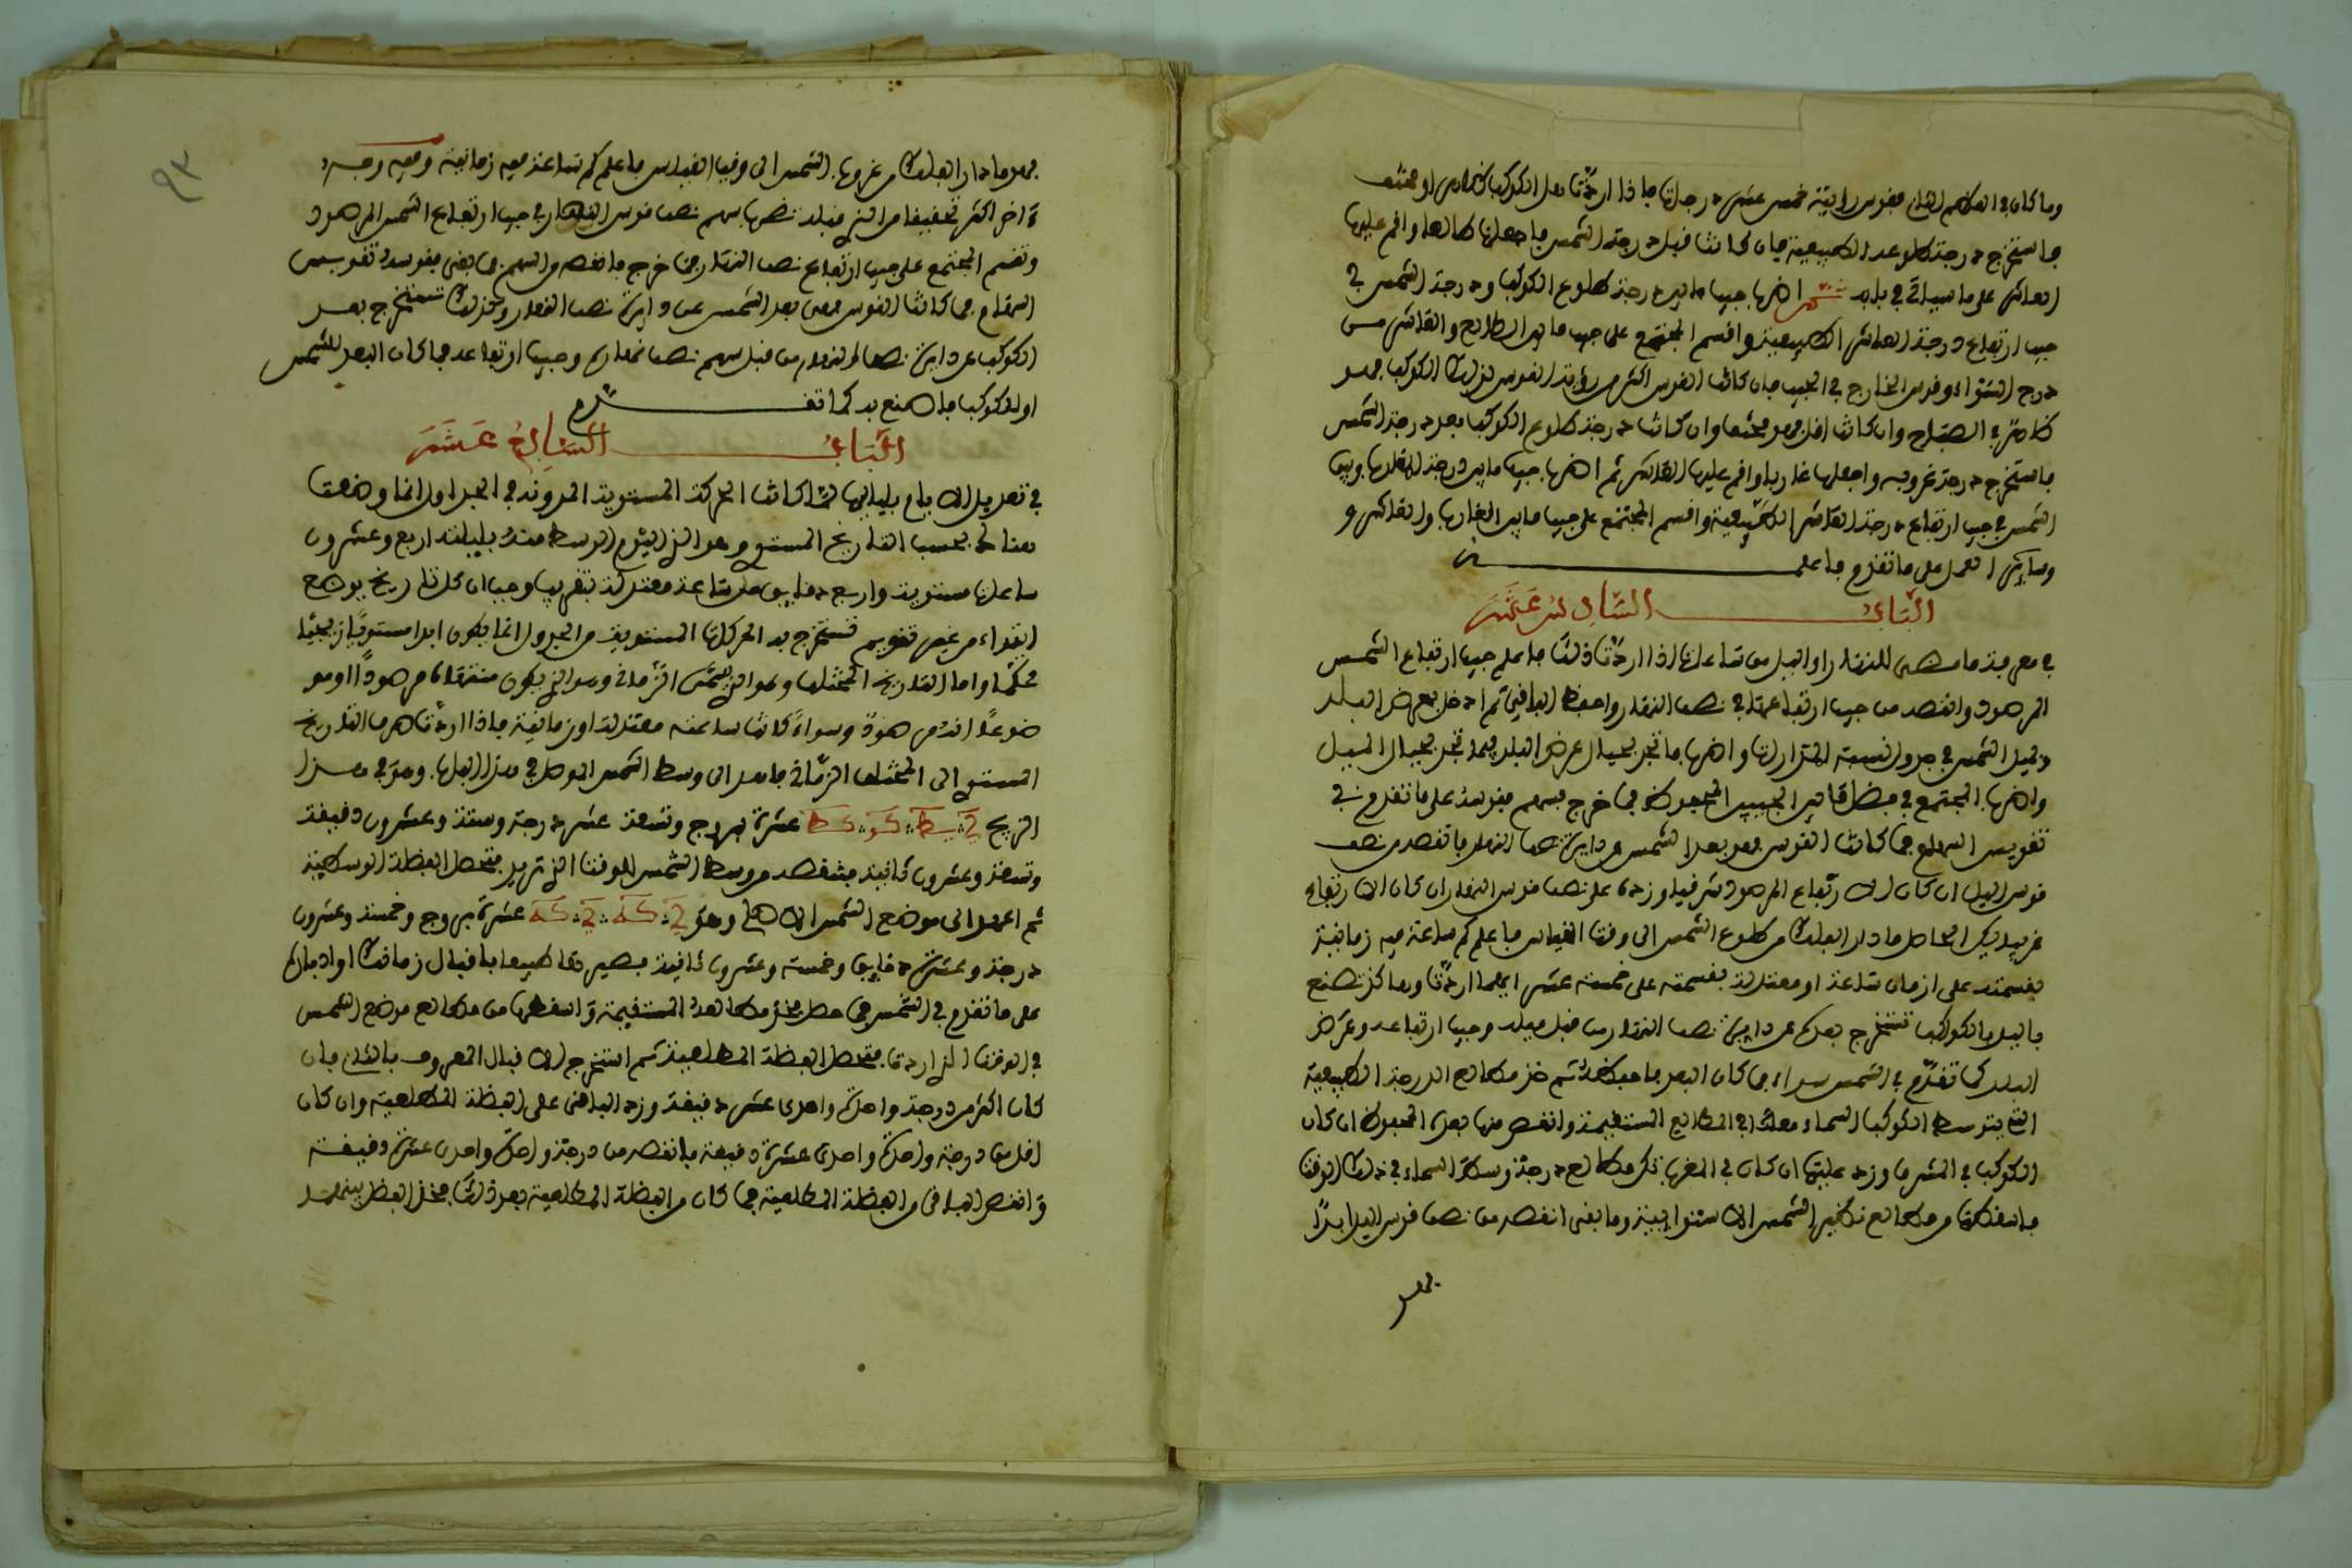 وما كان في العلم الثاني فقوس رؤيته خمس عشرة درجة فاذا اردت هل الكوكب ظاهر او مختف
فاستخرج درجة طلوعه الطبيعية فان كانت قبل درجة الشمس فاجعلها طالعا واقم عليها
العاشر على ما سياتي في بابه ثم اضرب جيب ما بين درجة طلوع الكوكب ودرجة الشمس في
جيب ارتفاع درجة العاشر الطبيعية واقسم المجتمع على جيب ما بين الطالع والعاشر من
درج السواء وقوس الخارج في الجيب فان كانت القوس اكثر من رؤية القوس لذلك الكوكب فهو
ظاهر في الصباح وان كانت اقل فهو مختف وان كانت درجة طلوع الكوكب بعد درجة الشمس
فاستخرج درجة غروبه واجعلها غاربا واقم عليها العاشر ثم اضرب جيب ما بين درجة
الشمس في جيب ارتفاع درجة العاشر الطبيعية واقسم المجتمع على جيب ما بين الغارب والعاشر و
وسائر العمل على ما تقدم فاعلمـــــن
البابُ الســـادس عَشَرَ
في معرفة ما مضى للنهار او الليل من ساعات اذا اردت ذلك فاعلم جيب ارتفاع الشمس
المرصود وانقصه من جيب ارتفاعها في نصف النهار واحفظ الباقي ثم ادخل بعرض البلد
وميل الشمس في جدول نسبة المقدارات واضرب ما تجد بحيال عرض البلد فيما تجد بحيال الميل
واضرب المجتمع في فضل ما بين الجيبين المحفوظ فما خرج فسهم فقوسه على ما تقدم في
تقويس السهام فما كانت القوس فهو بعد الشمس عن دايرة نصف النهار فانقصه من نصف
قوس النهار ان كان الارتفاع المرصود شرقيا وزده على نصف قوس النهار ان كان الارتفاع
غربيا يكن الحاصل ما دار الفلك من طلوع الشمس الى وقت القياس فاعلم كم ساعة فيه زمانية
بقسمته على ازمان ساعة او معتدلة بقسمته على خمسة عشر ايهما اردت وهاكذا تصنع
بالليل بالكوكب تستخرج بعدكم عن دايرة نصف النهار من قبل ميله وجيب ارتفاعه وعرض
البلد كما تقدم في الشمس سواء فما كان البعد فاحفظه ثم خذ مطالع الدرجة الطبيعية
التي يتوسط الكوكب السماء معها في المطالع المستقيمة وانقص منها بعدك المحفوظ ان كان
الكوكب في المشرق وزده عليها ان كان في المغرب تكن مطالع درجة وسط السماء في ذلك الوقت
فاسقطها من مطالع نظير الشمس الاستوايية وما بقي انقصه من نصف قوس الليل ابدا
فهو
فهو ما دار الفلك من غروب الشمس الى وقت القياس فاعلم كم ساعة فيه زمانية وفيه وجـه
ءاخر اكثر تخفيفا من الذي قبله تضرب سهم نصف قوس النهار في جيب ارتفاع الشمس المرصود
وتقسم المجتمع على جيب ارتفاع نصف النهار فما خرج فانقصه من السهم فما بقي فقوسه تقويس
السهام فما كانت القوس فهي بعد الشمس عن دايرة نصف النهار وكذلك تستخرج بعد
الكوكب عن دايرة نصف النهار من قبل سهم نصف نهاره وجيب ارتفاعه فما كان البعد للشمس
او للكوكب فاصنع به كما تقــــدم
البـــاب السَّابِع عَشَرَ
في تعديل الايام بلياليها لما كانت الحركة المستوية المدونة في الجداول انما وضعت
هناك بحسب التاريخ المستوي وهو الذي اليوم الوسط منه بليلته اربع وعشرون
ساعة مستوية واربع دقايق من ساعة معتدلة بتقريب وجب ان كل تاريخ يوضع
ابتداء من غير تقويم تستخرج به الحركات المستوية من الجدول انما يكون ابدا مستويا زيجيا
محكما واما التاريخ المختلف وهو الذي يسمى الزماني وهو الذي يكون منتقلا مرصودا او مو
ضوعا انه مرصود وسواء كانت ساعته معتدلة او زمانية فاذا اردت صرف التاريخ
المستوي الى المختلف الزماني فاعمد الى وسط الشمس الموصل في هذا الباب وهو في هذا
الزيج ي يط كو كط عشرة بروج وتسعة عشر درجة وستة وعشرون دقيقة
وتسعة وعشرون ثانية فتنقصه من وسط الشمس للوقت الذي تريد فتحصل الفضلة الوسطية
ثم اعمد الى موضع الشمس الاصلي وهو ي كه ي كه عشرة بروج وخمسة وعشرون
درجة وعشرة دقايق وخمسة وعشرون ثانية
على ما تقدم في الشمس فما حصل فخذ مطالعه المستقيمة واسقطها من مطالع موضع الشمس
في الوقت الذي اردت فتحصل الفضلة المطلعية ثم استخرج الاقبال المعروف بالثاني فان
كان اكثر من درجة واحدة واحدى عشرة دقيقة وزد الباقي على الفضلة المطلعية وان كان
اقل من درجة واحدة واحدى عشرة دقيقة فانقصه من درجة واحدة واحدى عشرة دقيقة
وانقص الباقي من الفضلة المطلعية فما كان من الفضلة المطلعية بعد ذلك فخذ الفضل بينهما
٩٣